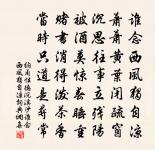 誰念西風獨自涼
蕭蕭黃葉閉疏窗
沉思往事立殘陽
被酒莫驚春睡重
賭書消得潑茶香
當時只道是尋常
納蘭性德浣溪沙誰念
西風獨自涼